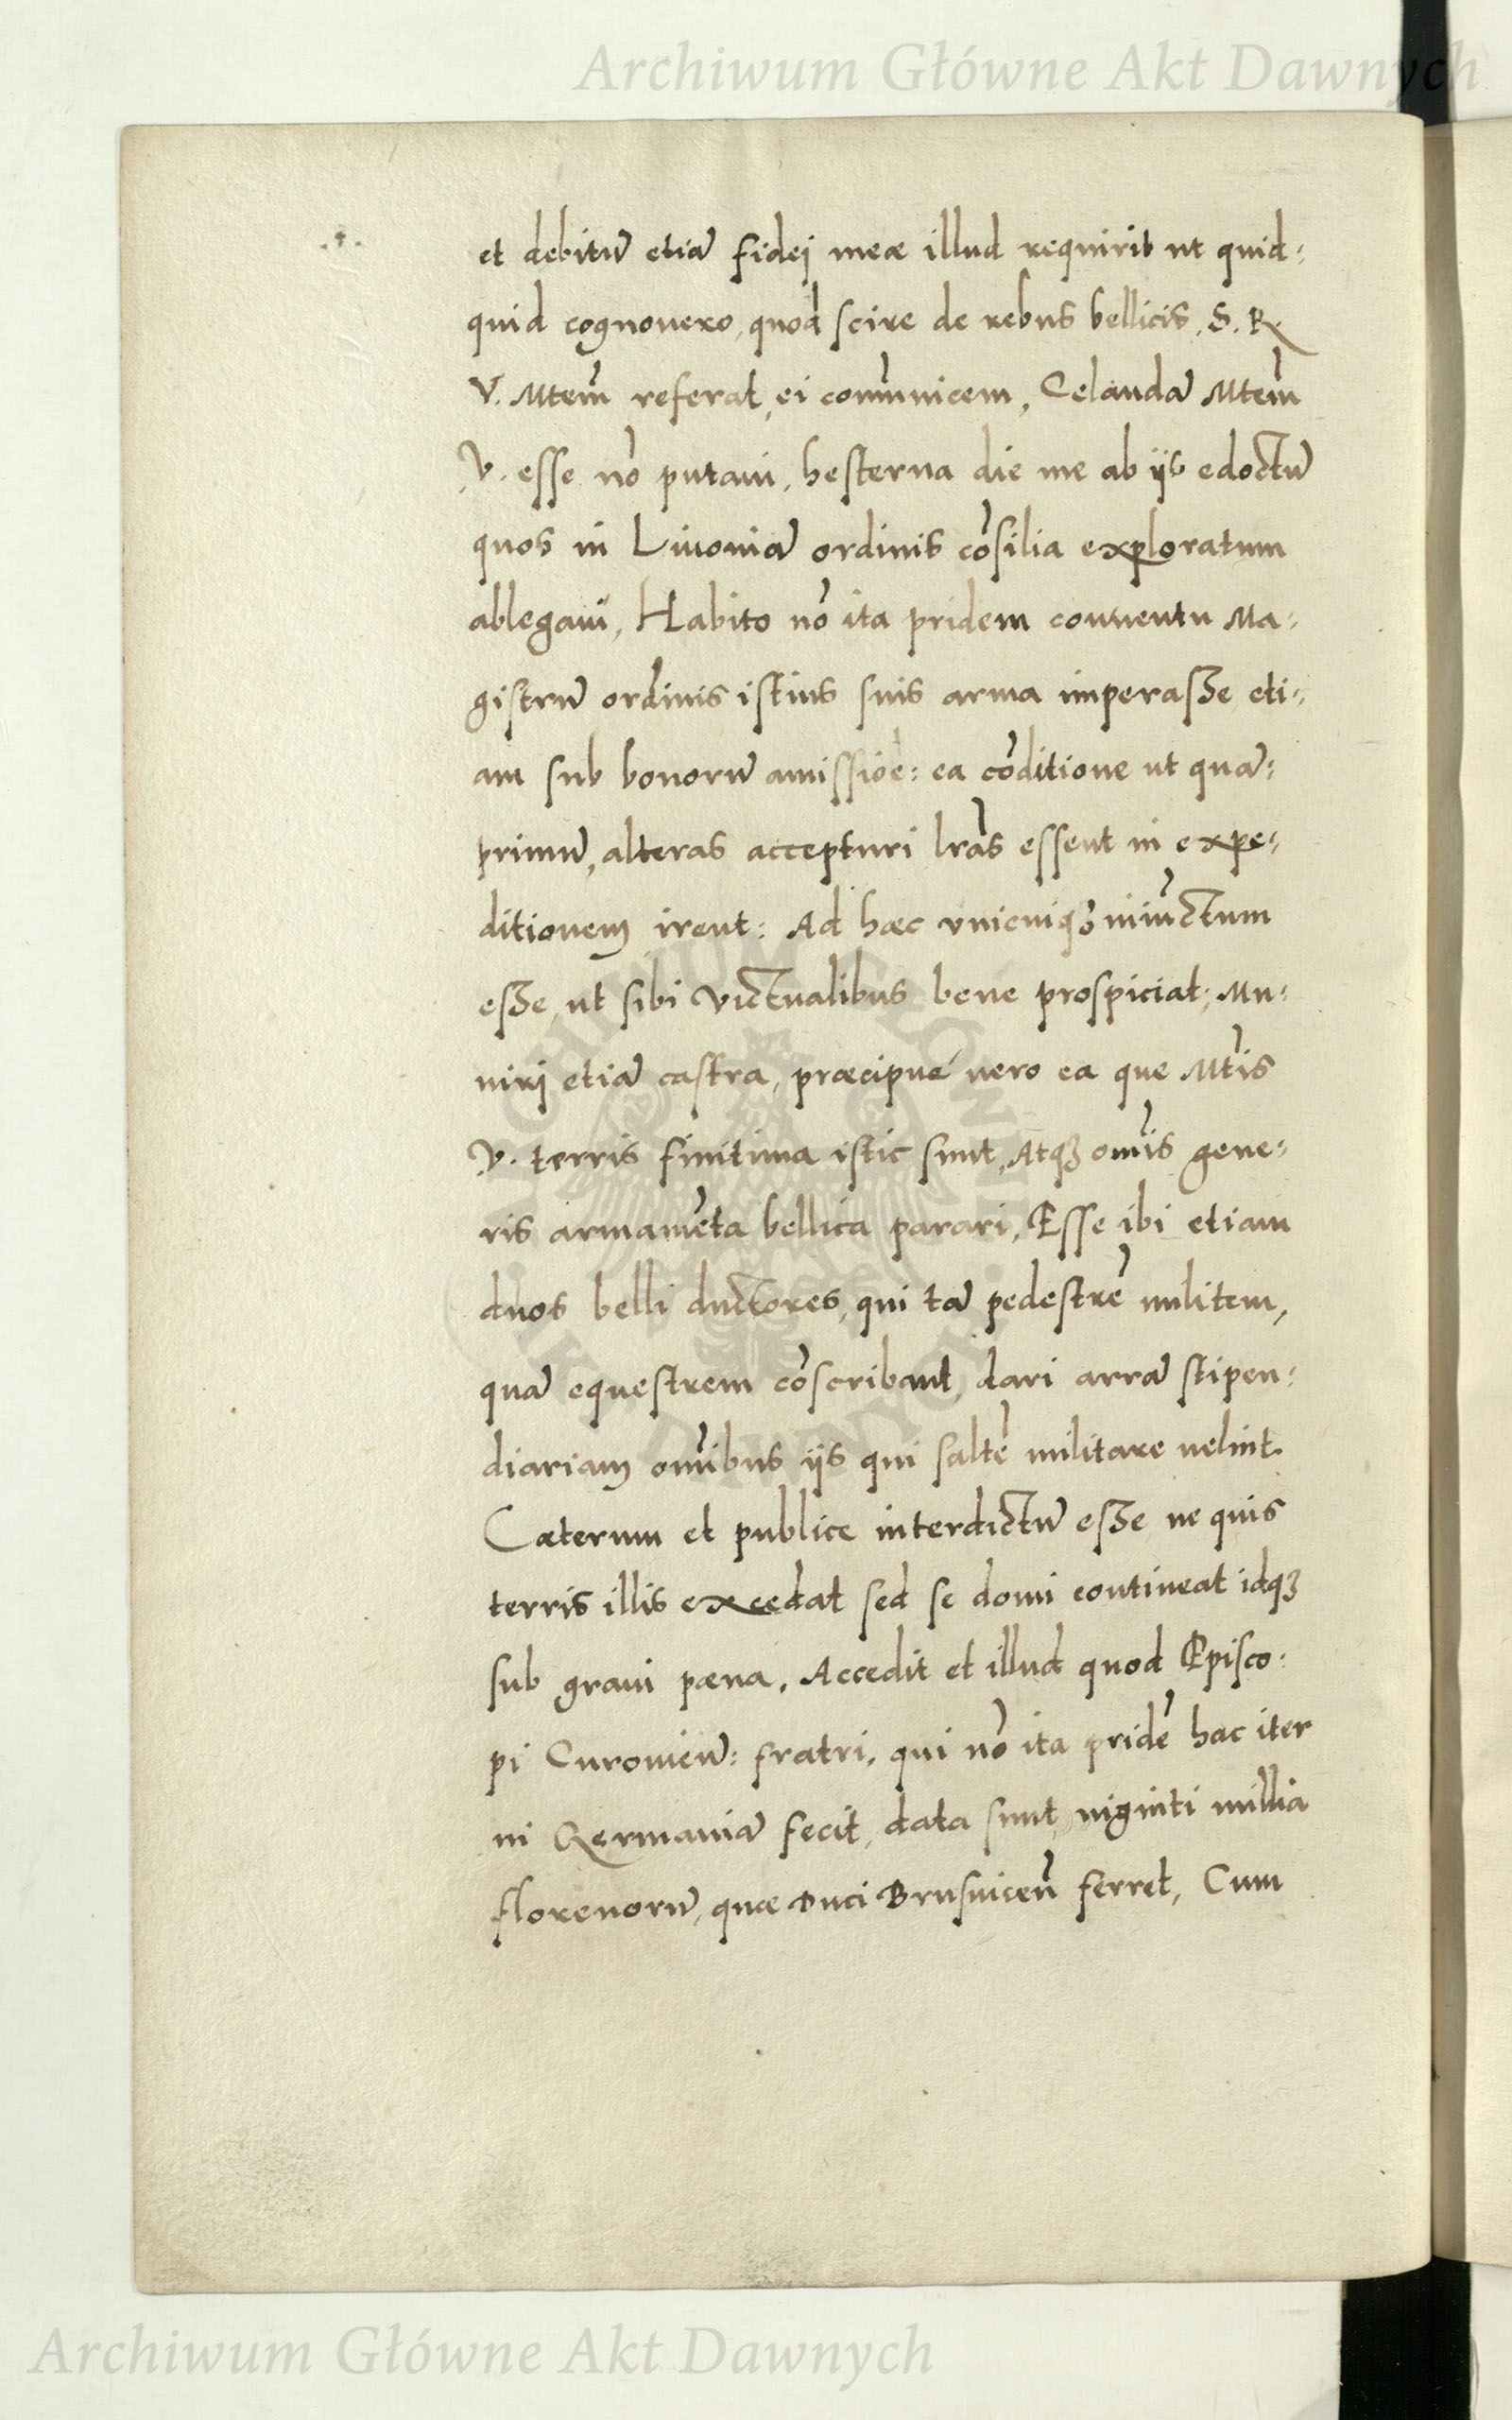 Archiwum Główne Akt Dawnych
et debitū etiā fidej meæ illud requirit ut quid-
quid cognouero, quod scire de rebus bellicis, S. R.
V. Mtem̄ referat, ei com̄unicem, Celandā Mtem̄
V. esse nō putaui, hesterna die me ab ijs edoctū
quos in Liuoniā ordinis cōsilia exploratum
ablegaui, Habito nō ita pridem conuentu Ma-
gistrū ordinis istius suis arma imperasse eti-
am sub bonorū amissiōe: ea cōditione ut quā-
primū, alteras accepturi lrās essent in expe-
ditionem irent: Ad hæc vnicuiqȝ iniūctum
esse, ut sibi victualibus bene prospiciat, Mu-
nirj etiā castra, præcipué uero ea que Mtīs
V. terris finitima istic sunt, Atqȝ om̄is gene-
ris armamēta bellica parari, Esse ibi etiam
duos belli ductores, qui tā pedestrē militem,
quā equestrem cōscribant, dari arrā stipen-
diariam om̄ibus ijs qui saltē militare uelint.
Cæterum et publice interdictū esse ne quis
terris illis excedat sed se domi contineat idqȝ
sub graui pæna, Accedit et illud quod Episco-
pi Curonien̄: fratri, qui nō ita pridē hac iter
in Germaniā fecit, data sunt, uiginti millia
florenorū, quæ Duci Brusuicen̄ ferret, Cum
Archiwum Główne Akt Dawnych